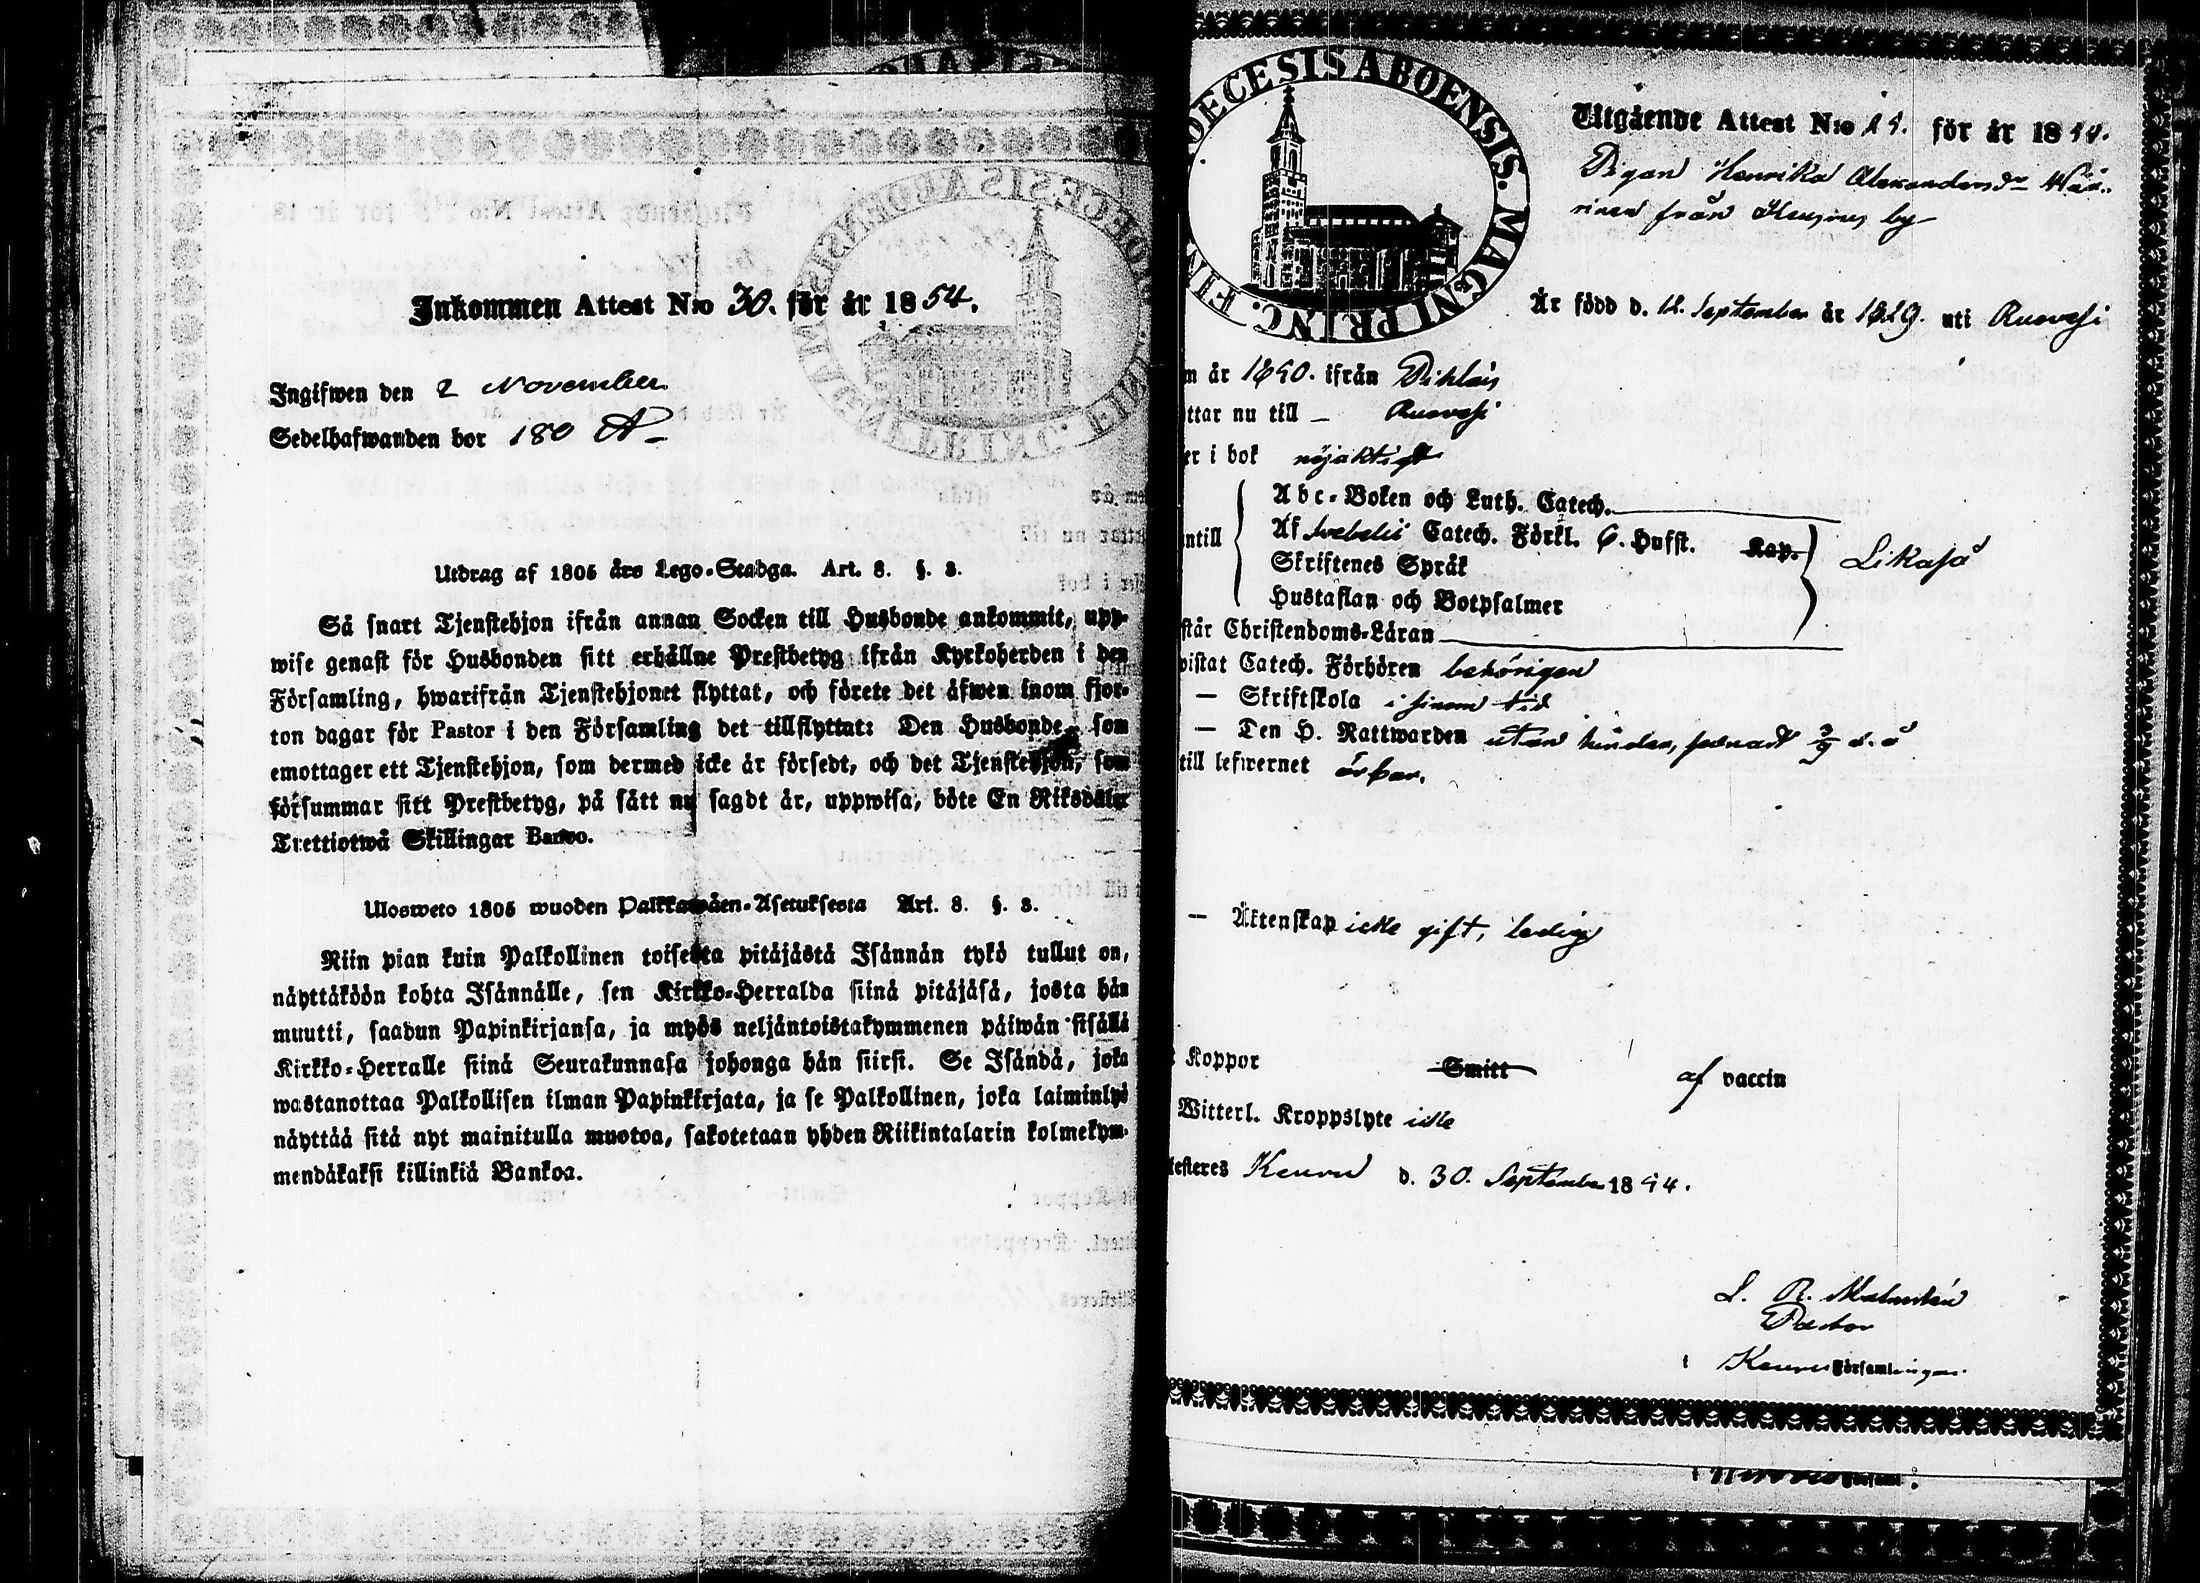 Inkommen Attest N:o 30. för år 1854.
Ingifwen den 2 November
Sedelhafwanden bor 180 A
Utdrag af 1805 års Lego-Stadga. Art. 8. §. 3.
Så snart Tjenstehjon ifrån annan Socken till Husbonde ankommit, upp-
wise genast för Husbonden sitt erhållne Prestbetyg ifrån Kyrkoherden i den
Församling, hwarifrån Tjenstehjonet flyttat, och förete det äfwen inom fjor-
ton dagar för Pastor i den Församling det tillflyttat: Den Husbonde, som
emottager ett Tjenstehjon, som dermed icke är försedt, och det Tjenstehjon, som
försummar sitt Prestbetyg, på sätt nu sagdt är, uppwisa, böte En Riksdaler
Trettiotwå Skillingar Banco.
Ulosweto 1805 wuoden Palkkawäen-Asetuksesta Art. 8. §. 3.
Niin pian kuin Palkollinen toisesta pitäjästä Isännän tykö tullut on,
näyttäköön kohta Isännälle, sen Kirkko-Herralda siinä pitäjäsä, josta hän
muutti, saadun Papinkirjansa, ja myös neljäntoistakymmenen päiwän sisällä
Kirkko-Herralle siinä Seurakunnasa johonga hän siirsi. Se Isändä, joka
wastanottaa Palkollisen ilman Papinkirjata, ja se Palkollinen, joka laiminlyö
näyttää sitä nyt mainitulla muotoa, sakotetaan yhden Riikintalarin kolmekym-
mendäkaksi killinkiä Bankoa.
DECESIS ABOENSIS. MAGNI PRINC. FIN
Utgående Attest N:o för år 18
Pigan Henrika Alexandersdr
från by
Är född d. 12. September år 1829. uti Ruovesi
m år ifrån Pihlaj
ttar nu till – Ruovesi
er i bok nöjaktigt
Abc-Boken och Luth. Catech.
antill Af Svebelii Catech. Förkl. 6. Hufst. Kap. Likaså
Skriftenes Språk
Hustaflan och Botpsalmer
står Christendoms-Läran
wistat Catech. Förhören behörigen
— Skriftskola i sinom tid
— Den H. Nattwarden utan hinder, senast d. å
till lefwernet ärbar.
— Äktenskap icke gift, ledig
Koppor Smitt af vaccin
Witterl. Kroppslyte icke
testeres Keuru d. 30. September 1854.
Pastor
i Keuru Församlingar.